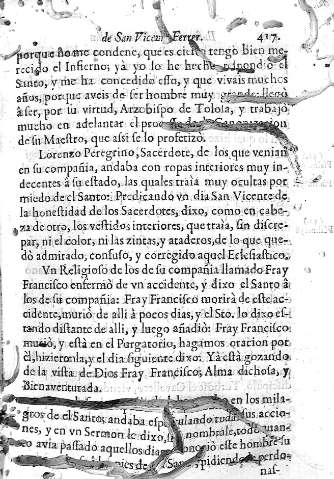 de San Vicente Ferrer. 417.
porque no me condene, que es cierto tengo bien me-
recido el Infierno; yà yo lo he hecho, respondiò el
Santo, y me ha concedido esso, y que vivais muchos
años, porque aveis de ser hombre muy grande: llegò
à ser, por su virtud, Arzobispo de Tolosa, y trabajó
mucho en adelantar el de la Canonizacion
de su Maestro, que assi se lo profetizò.
Lorenzo Peregrino, Sacerdote, de los que venian
en su compañia, andaba con ropas interiores muy in-
decentes à su estado, las quales traìa muy ocultas por
miedo de el Santo. Predicando vn dia San Vicente de
la honestidad de los Sacerdotes, dixo, como en cabe-
za de otro, los vestidos interiores, que traìa, sin discre-
par, ni el color, ni las zintas, y ataderos, de lo que que-
dò admirado, confuso, y corregido aquel Eclesiastico.
Vn Religioso de los de su compañia llamado Fray
Francisco enfermò de vn accidente, y dixo el Santo à
los de su compañia: Fray Francisco morirà de este ac-
cidente, murió de alli à pocos dias, y el Sto. lo dixo es-
tando distante de alli, y luego añadiò: Fray Francisco
muriò, y està en el Purgatorio, hagamos oracion por
èl, hizieronla, y el dia siguiente dixo: Yà està gozando
de la vista de Dios Fray Francisco, Alma dichosa, y
Bienaventurada.
en los mila-
gros de el Santo, andaba espiando todas sus accio-
nes, y en vn Sermon le dixo, sin nombrarle, todo quan-
to avia passado aquellos dias, conociò este hombre su
pies de el Santo, pidiendole perdo-
nas-